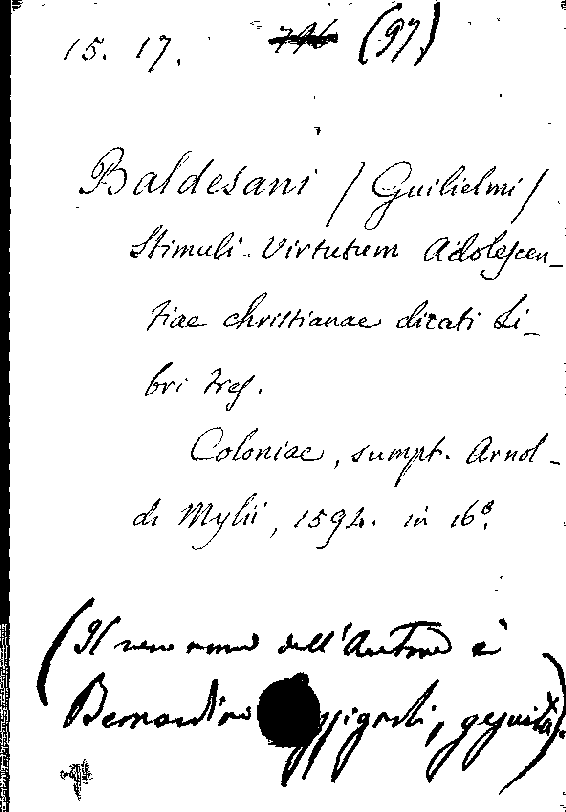 15. 17. 796 (97)
Baldesani / Guilielmi /
Stimuli Virtutum Adolescen-
tiae christianae dicati Li-
bri tres.
Coloniae, sumpt. Arnol-
di Mylii, 1594. in 16º.
(Il vero nome dell'Autore è
Bernardino gesuita).